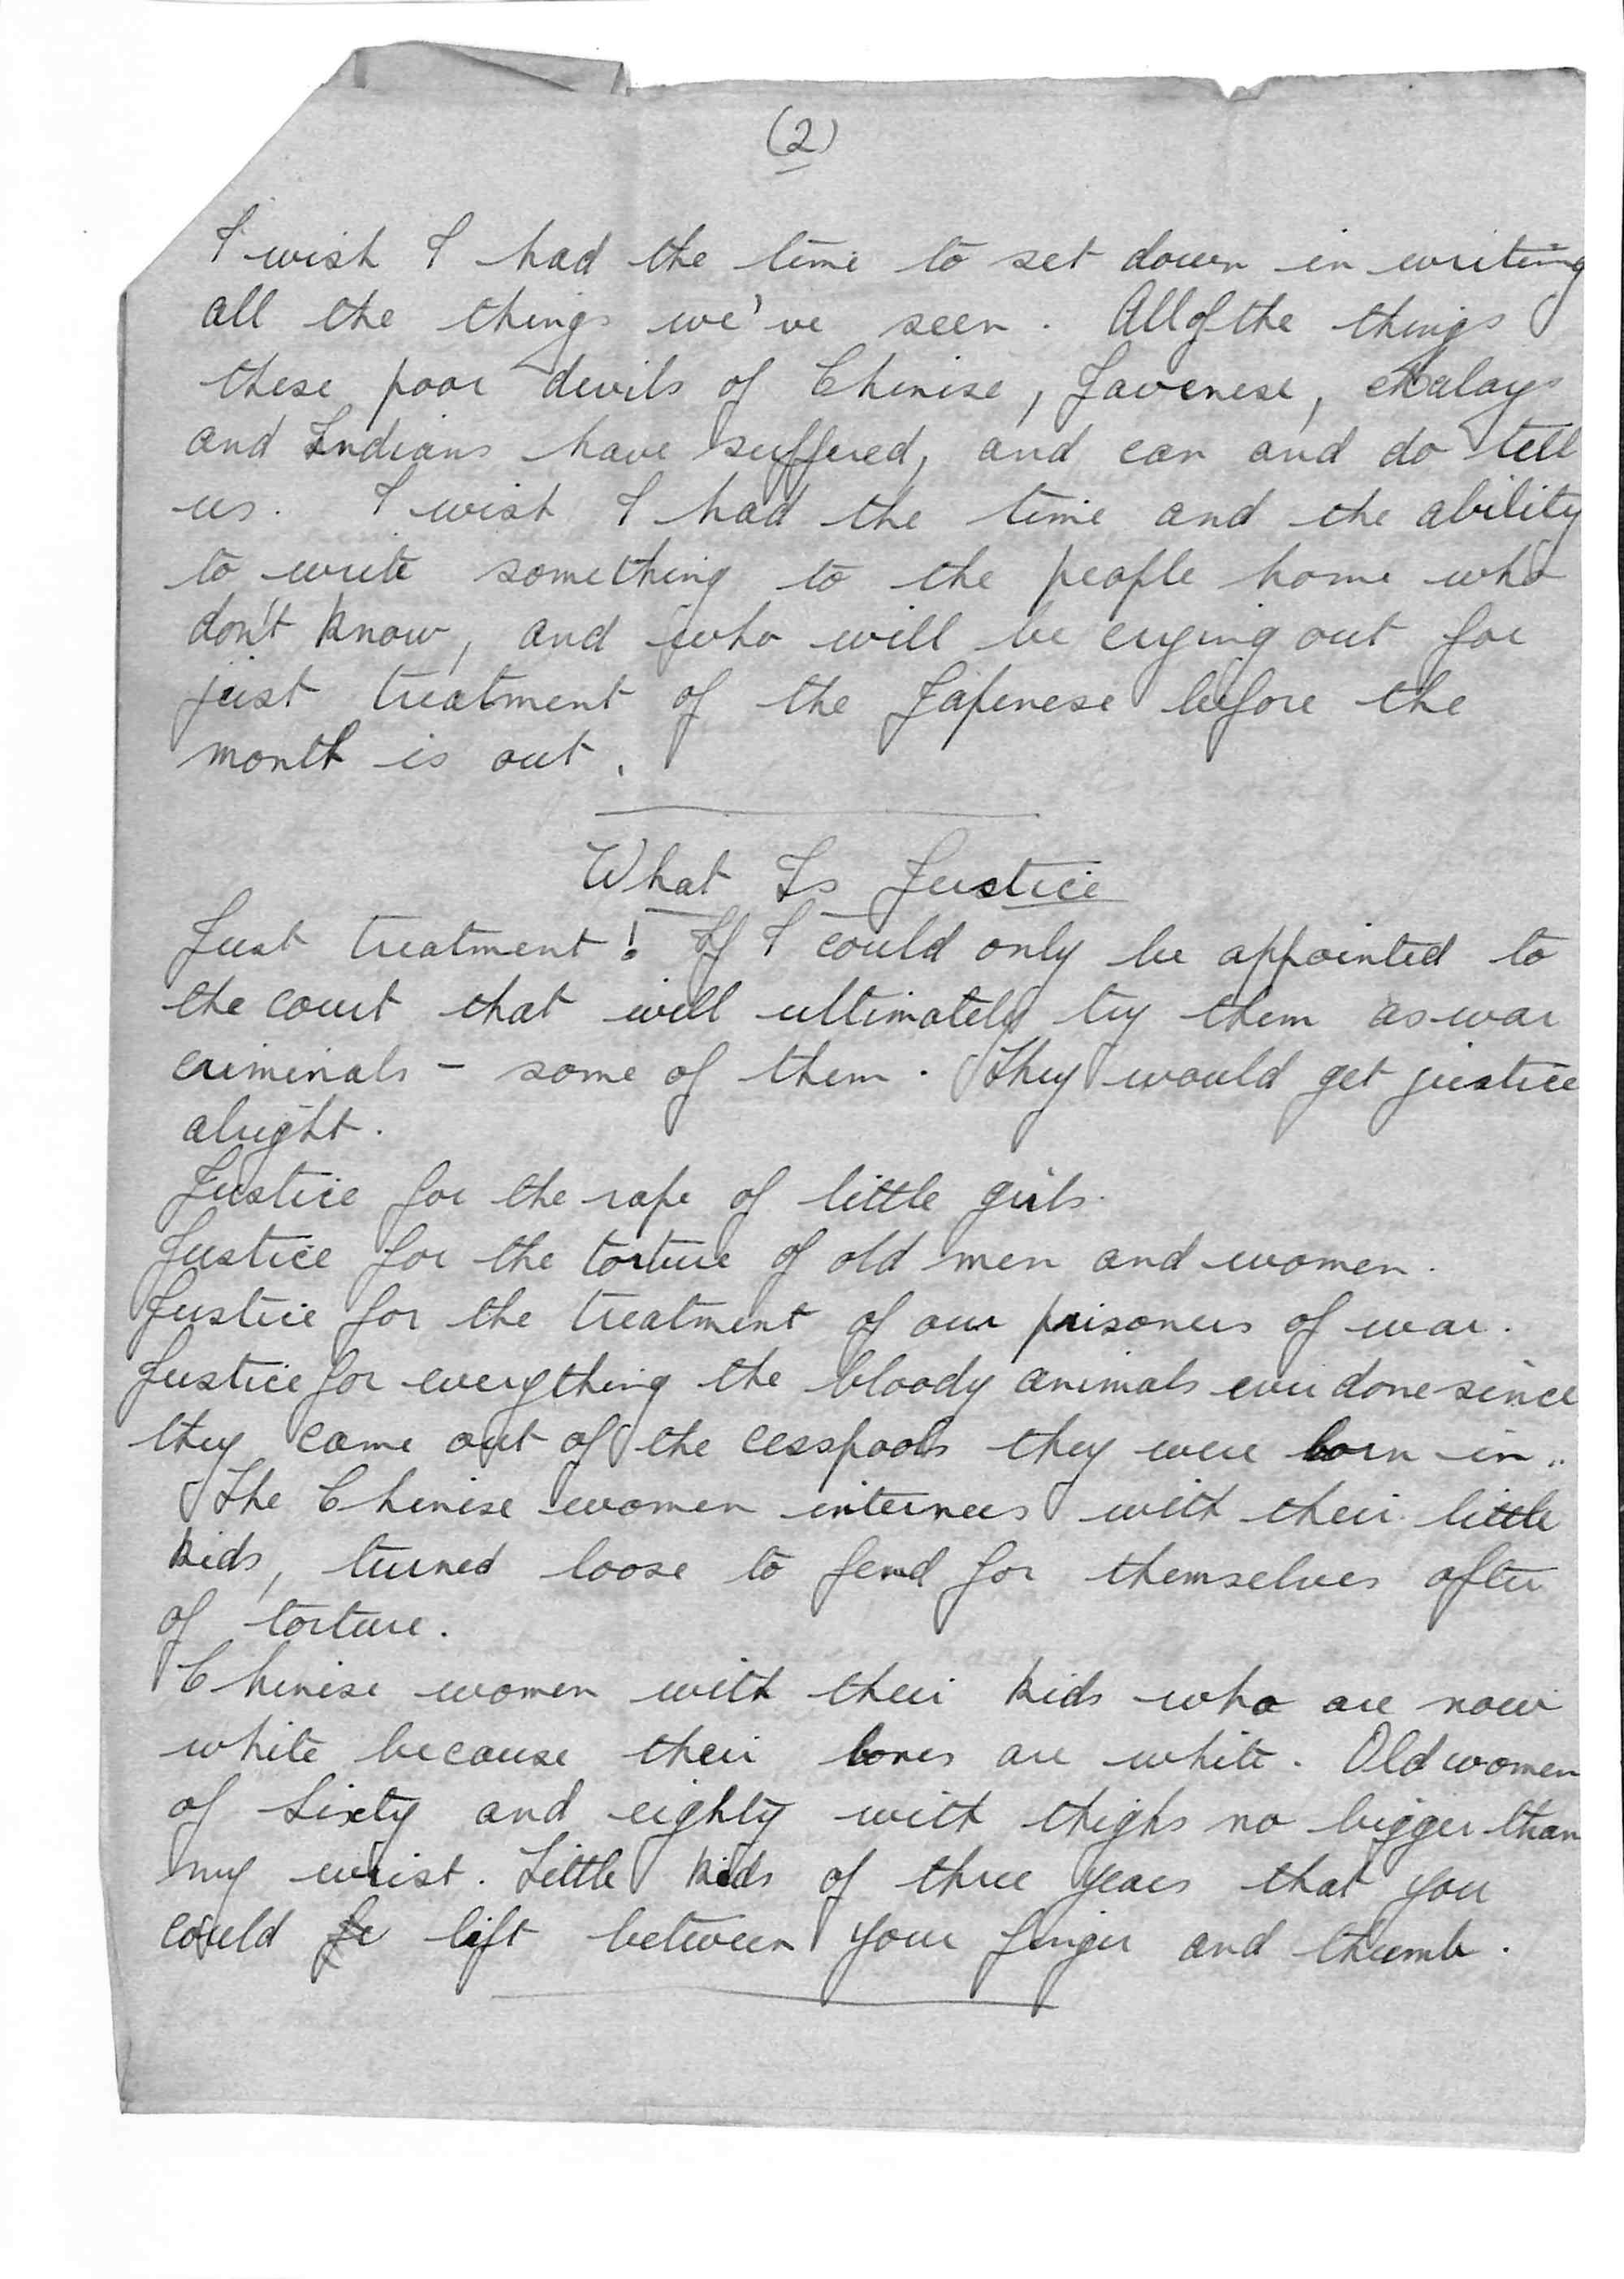 (2)
I wish I had the time to set down in writing
all the things we've seen. All of the things
these poor devils of Chinise, Javenese, Malays
and Indians have suffered, and can and do tell
us. I wish I had the time and the ability
to write something to the people home who
don't know, and who will be crying out for
just treatment of the Japenese before the
month is out.
What Is Justice
Just treatment! If I could only be appointed to
the court that will ultimately try them as war
criminals - some of them. They would get justice
alright.
Justice for the rape of little girls.
Justice for the torture of old men and women.
Justice for the treatment of our prisoners of war.
Justice for everything the bloody animals ever done since
they came out of the cesspools they were born in..
The Chinise women internees with their little
kids, turned loose to fend for themselves after
of torture.
Chinise women with their kids who are now
white because their bones are white. Old women
of sixty and eighty with thighs no bigger than
my wrist. Little kids of three years that you
could lift between your finger and thumb.